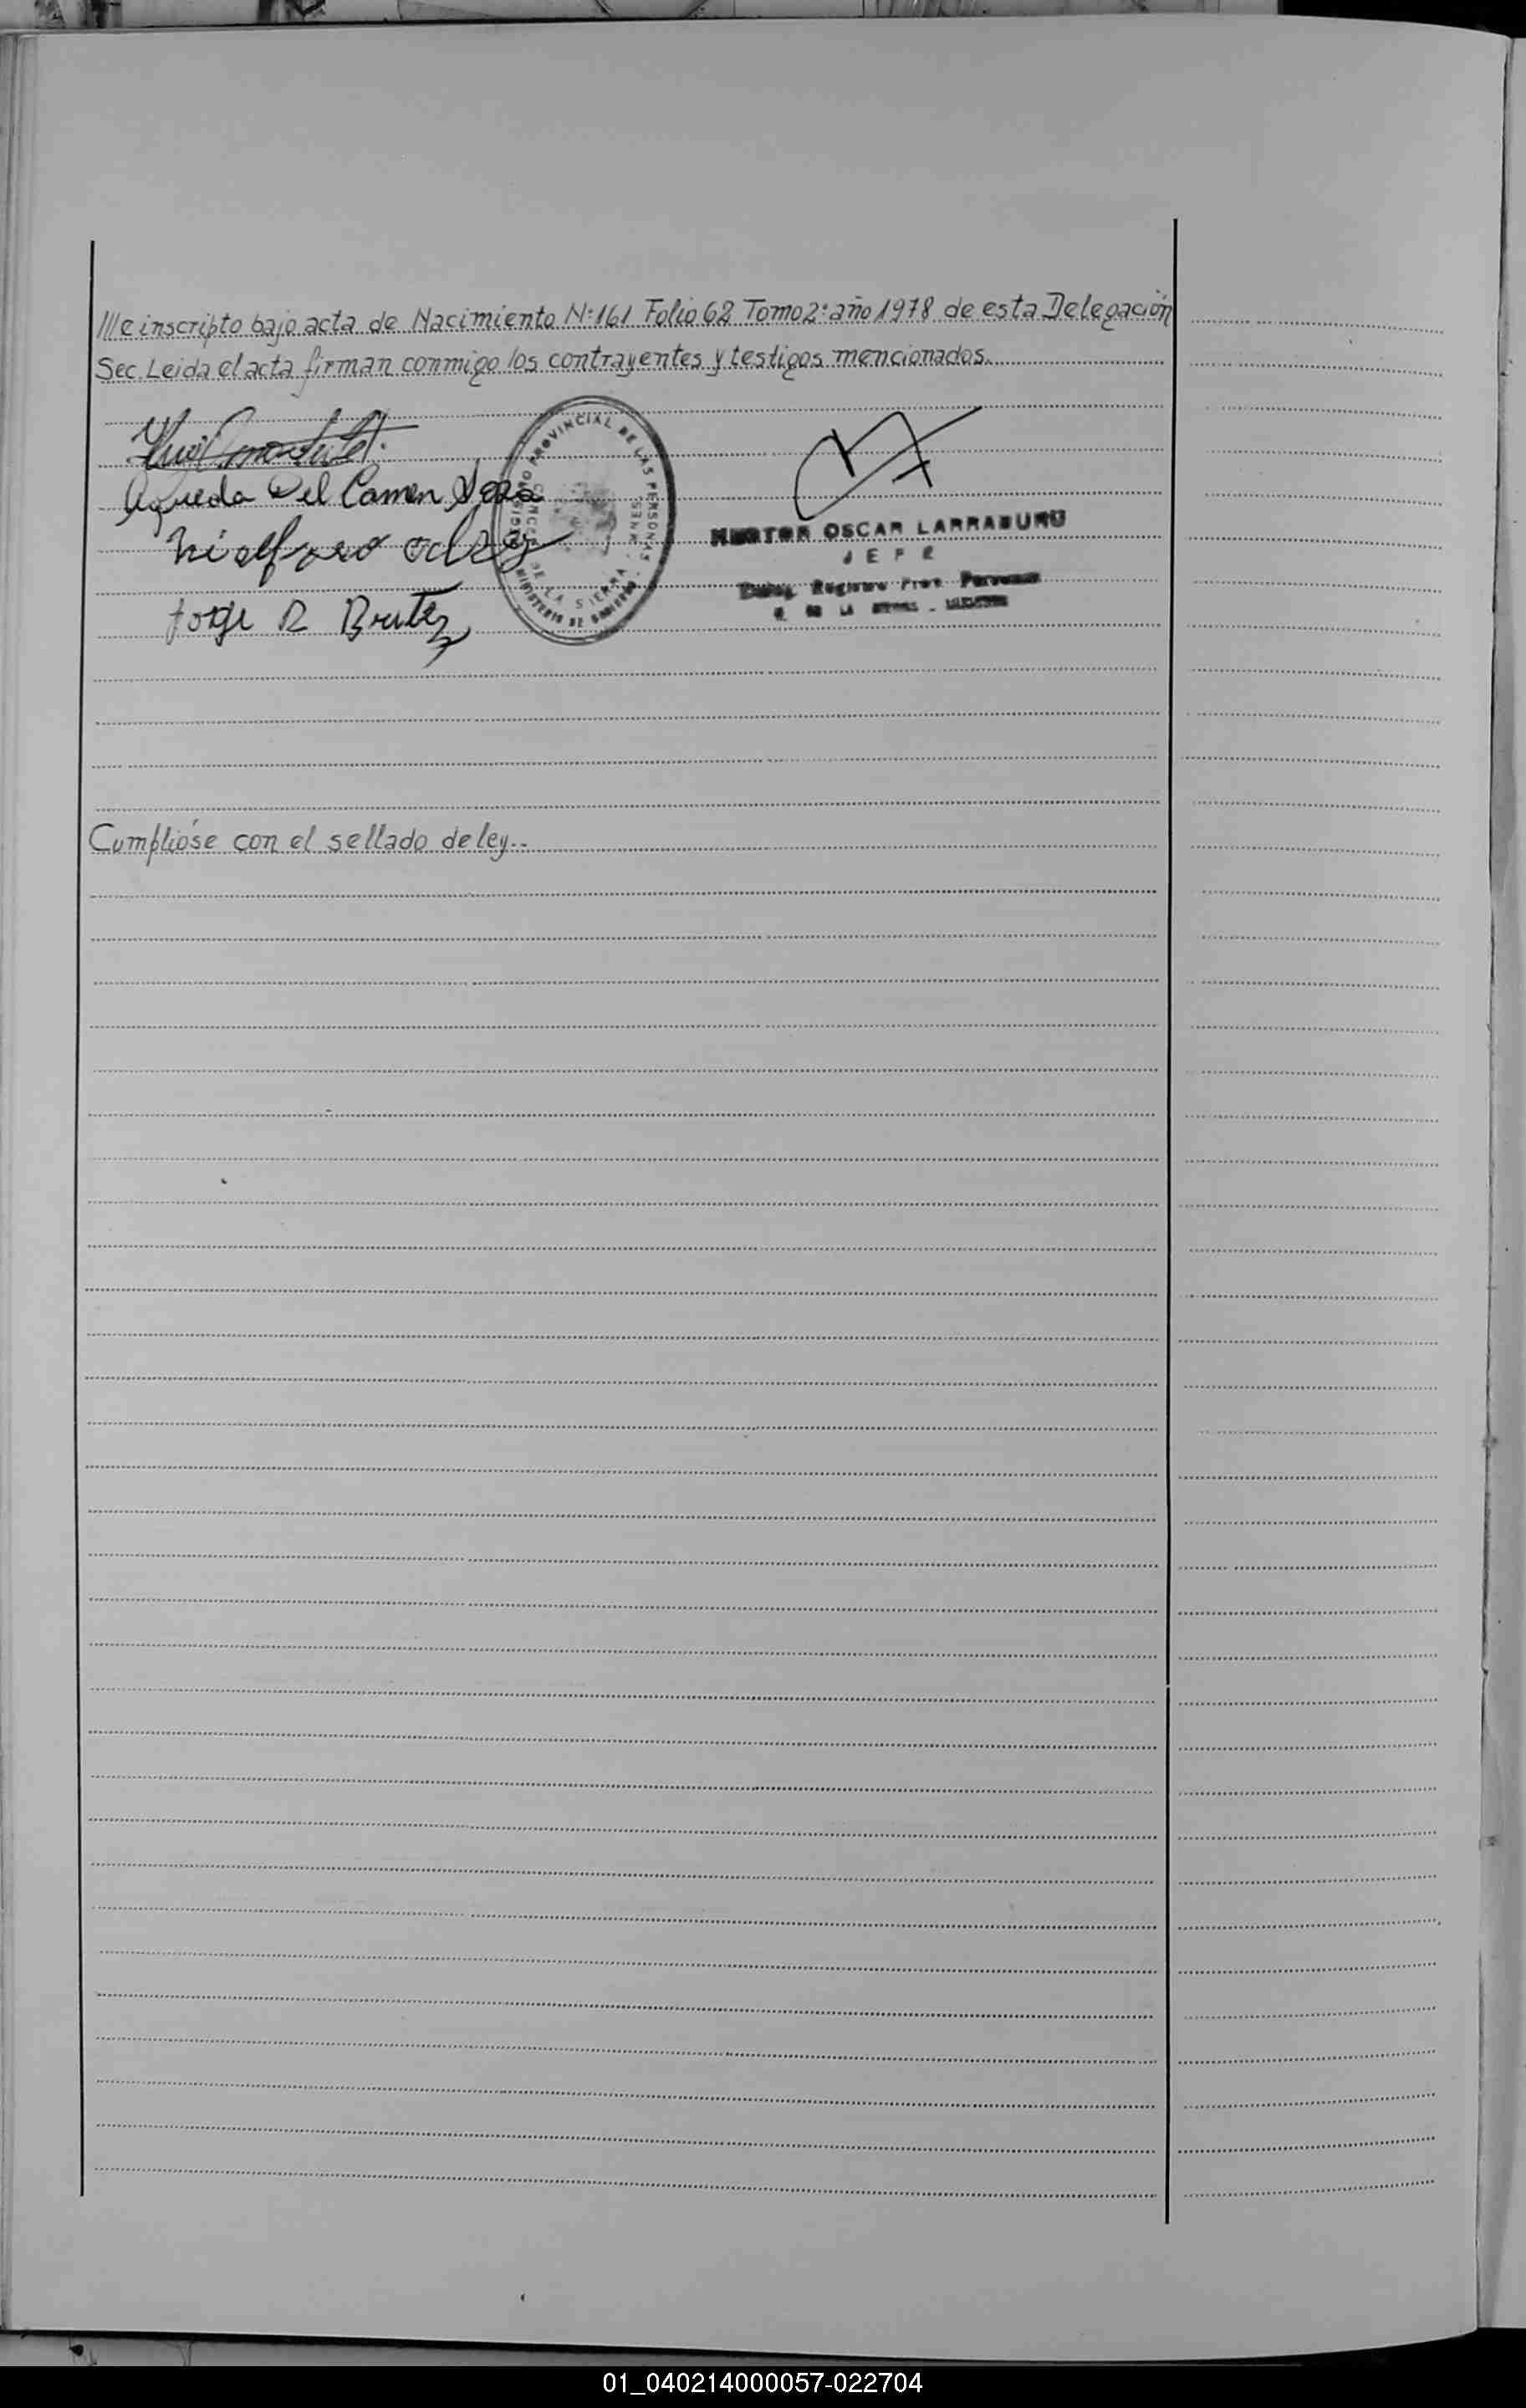 ///e inscripto bajo acta de Nacimiento Nº161 Folio 62 Tomo 2º año 1978 de esta Delegación
Sec. Leida el acta firman conmigo los contrayentes y testigos mencionados.
Agueda Del Carmen
Jorge R
REGISTRO PROVINCIAL DE LAS PERSONAS
DE LA SIERRA
MINISTERIO DE GOBIERNO
OSCAR LARRABURU
JEFE
Cumplióse con el sellado de ley..
01_040214000057-022704